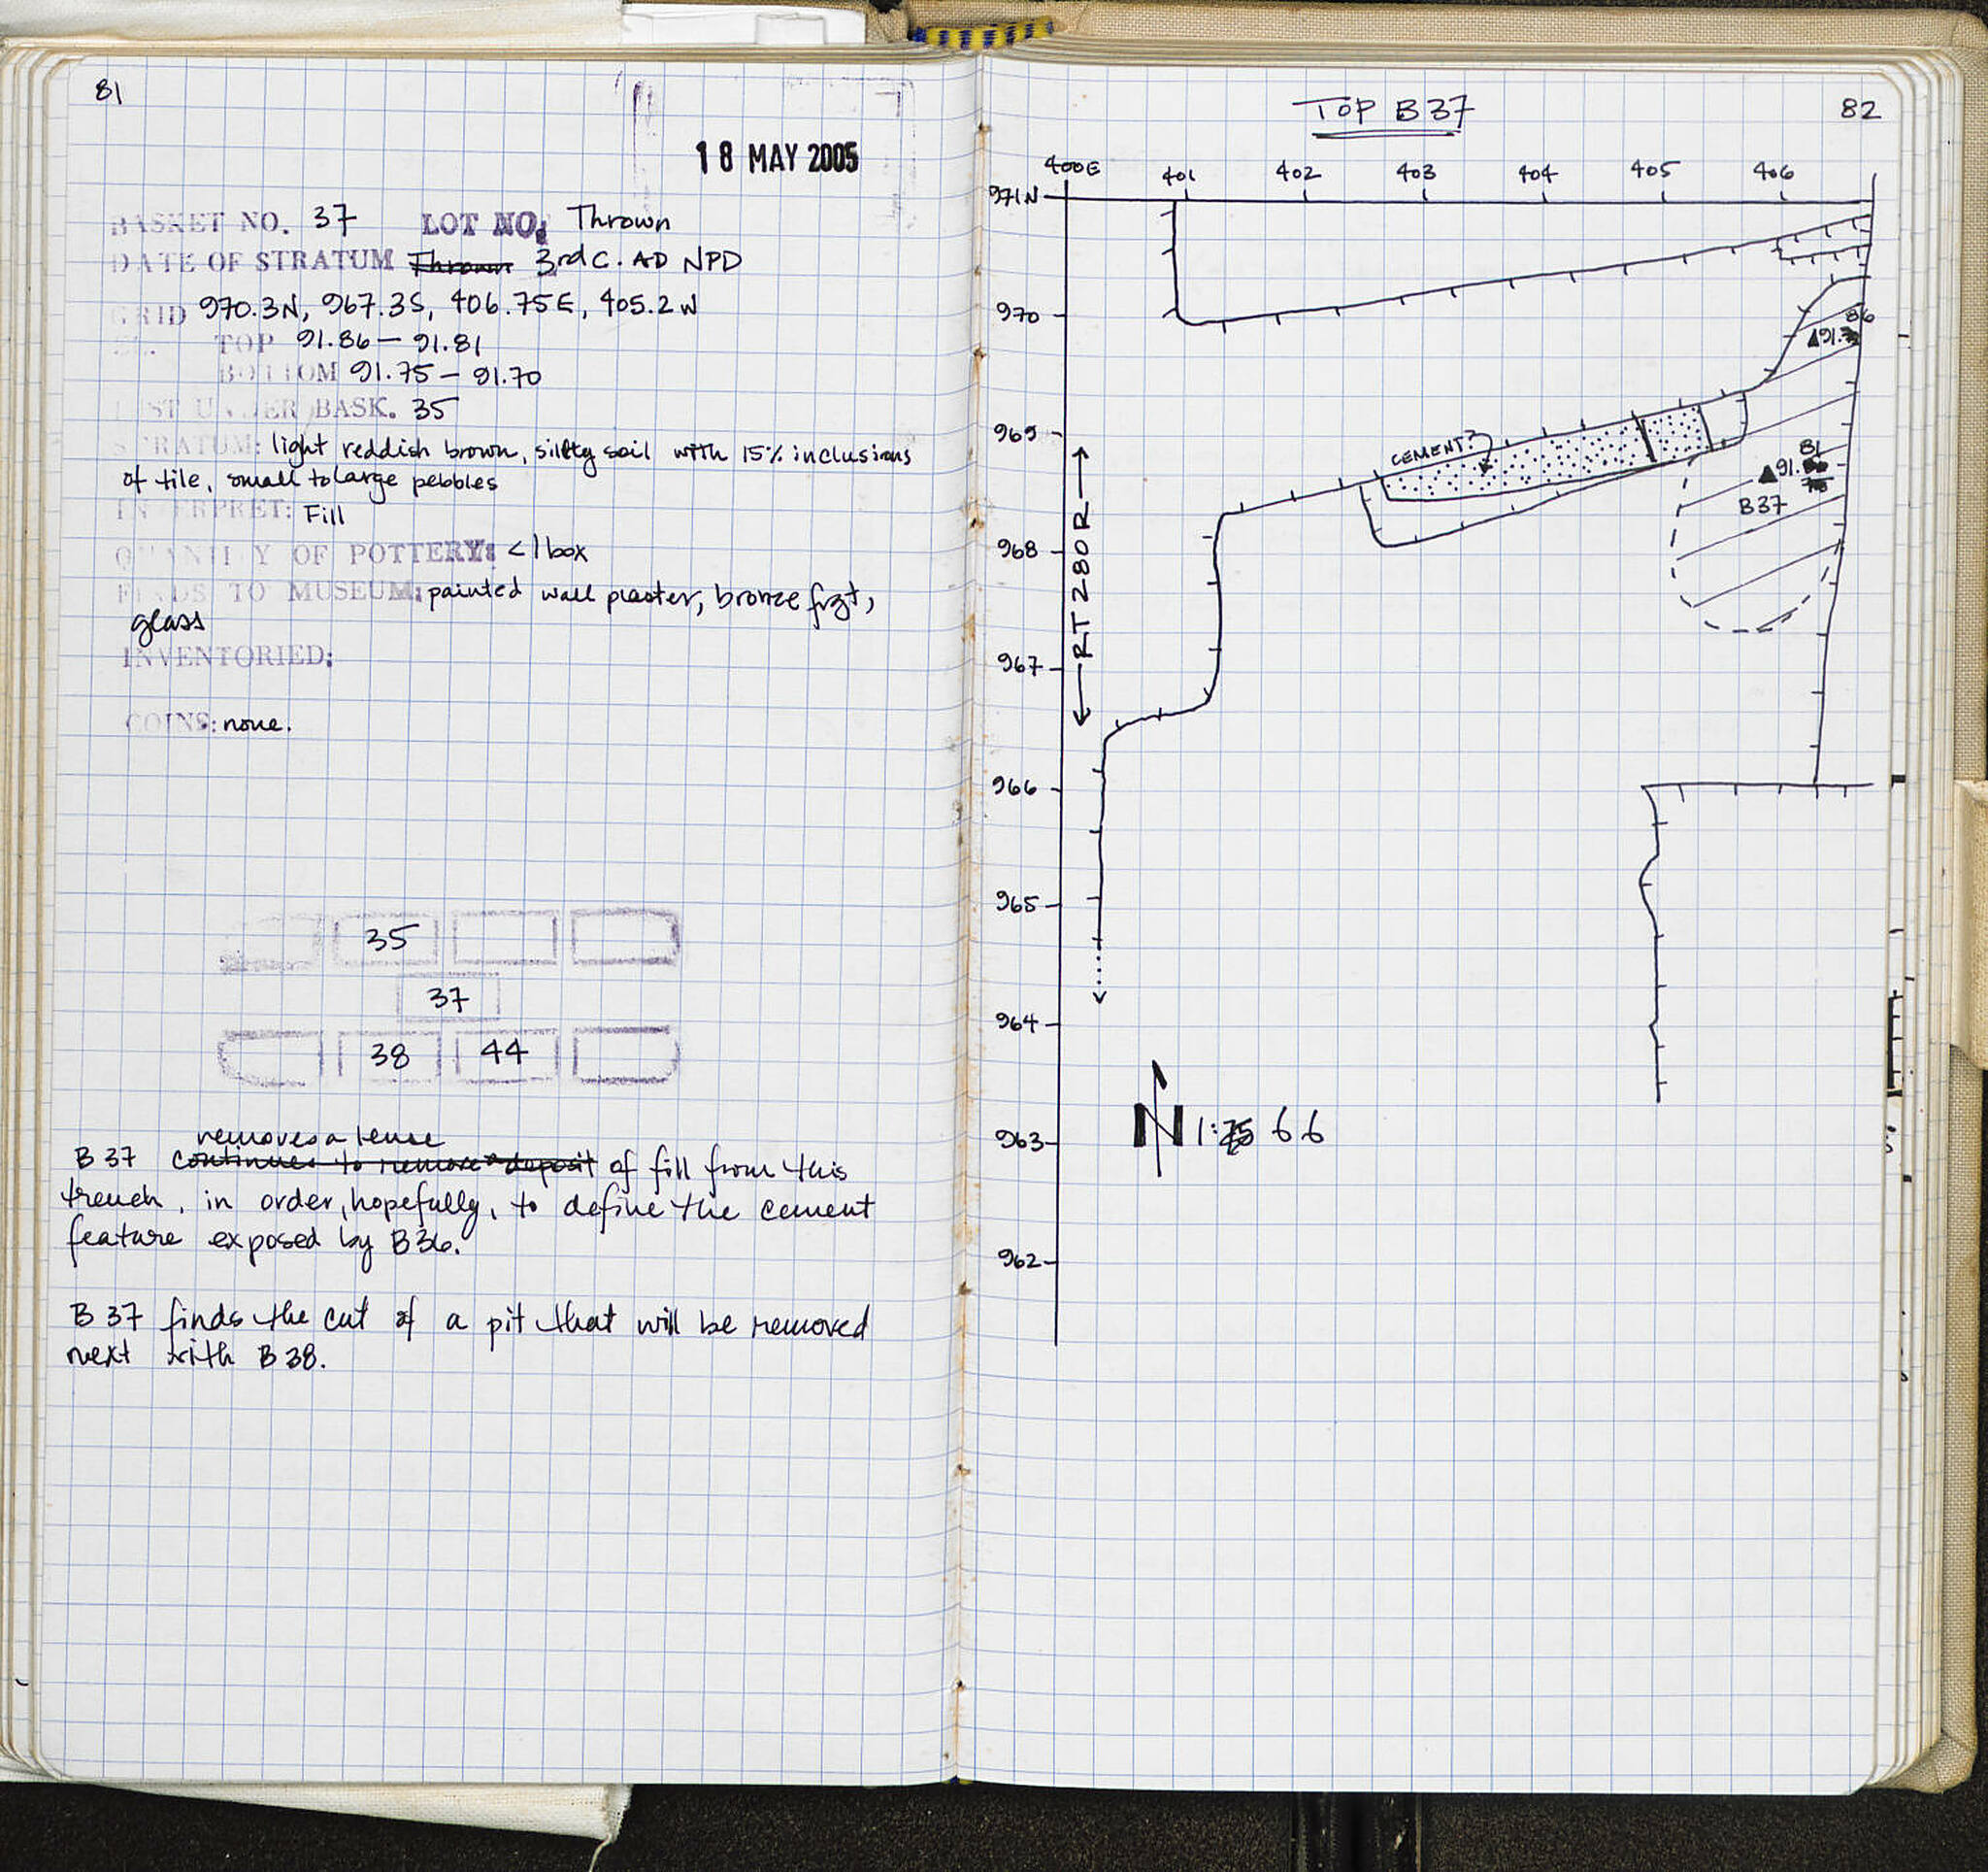 81
18 MAY 2005
BASKET NO. 37 LOT NO: Thrown
DATE OF STRATUM Thrown 3rd C. AD NPD
GRID 970.3N, 967.3S, 406.75E, 405.2W
TOP 91.86 — 91.81
BOTTOM 91.75 — 91.70
BASK. 35
STRATUM: light reddish brown, silty soil with 15% inclusions
of tile, small to large pebbles
INTERPRET: Fill
QUANTITY OF POTTERY: <1 box
FINDS TO MUSEUM: painted wall plaster, bronze frgt,
glass
INVENTORIED:
COINS: none.
35
37
38 44
removes a lense
B 37 continues to remove a deposit of fill from this
trench, in order, hopefully, to define the cement
feature exposed by B36.
B 37 finds the cut of a pit that will be removed
next with B 38.
TOP B37
82
400E 401 402 403 404 405 406
971N
970
86
▲91.
969
CEMENT?
81
▲91.
B37
968
←RT280R→
967
966
965
964
963
N 1: 66
962